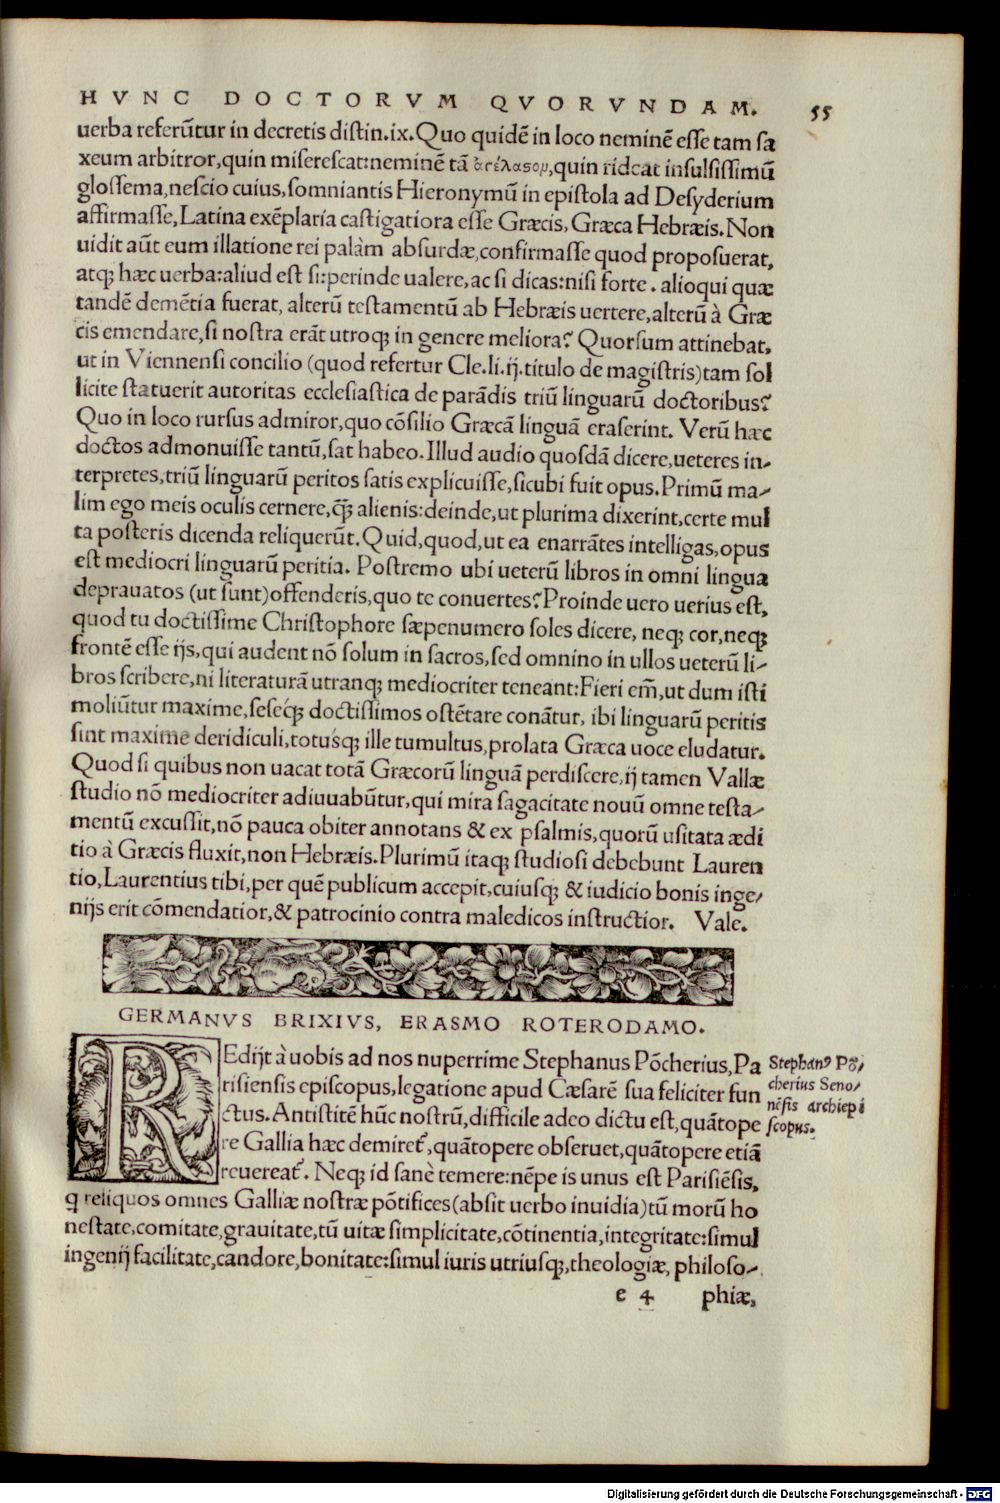 HVNC DOCTORVM QVORVNDAM. 55
uerba referũtur in decretis distin.ix. Quo quidẽ in loco neminẽ esse tam sa
xeum arbitror, quin miserescat: neminẽ tã ἀγέλαςον, quin rideat insulsissimũ
glossema, nescio cuius, somniantis Hieronymũ in epistola ad Desyderium
affirmasse, Latina exẽplaria castigatiora esse Græcis, Græca Hebræis. Non
uidit aũt eum illatione rei palàm absurdæ, confirmasse quod proposuerat,
atq; hæc uerba: aliud est si: perinde ualere, ac si dicas: nisi forte. alioqui quæ
tandẽ demẽtia fuerat, alterũ testamentũ ab Hebræis uertere, alterũ à Græ
cis emendare, si nostra erãt utroq; in genere meliora? Quorsum attinebat,
ut in Viennensi concilio (quod refertur Cle.li.ij.titulo de magistris) tam sol
licite statuerit autoritas ecclesiastica de parãdis triũ linguarũ doctoribus?
Quo in loco rursus admiror, quo cõsilio Græcã linguã eraserint. Verũ hæc
doctos admonuisse tantũ, sat habeo. Illud audio quosdã dicere, ueteres in-
terpretes, triũ linguarũ peritos satis explicuisse, sicubi fuit opus. Primũ ma-
lim ego meis oculis cernere, q̃; alienis: deinde, ut plurima dixerint, certe mul
ta posteris dicenda reliquerũt. Quid, quod, ut ea enarrãtes intelligas, opus
est mediocri linguarũ peritia. Postremo ubi ueterũ libros in omni lingua
deprauatos (ut sunt) offenderis, quo te conuertes? Proinde uero uerius est,
quod tu doctissime Christophore sæpenumero soles dicere, neq; cor, neq;
frontẽ esse ijs, qui audent nõ solum in sacros, sed omnino in ullos ueterũ li-
bros scribere, ni literaturã utranq; mediocriter teneant: Fieri em̃, ut dum isti
moliũtur maxime, seseq́; doctissimos ostẽtare conãtur, ibi linguarũ peritis
sint maxime deridiculi, totusq́; ille tumultus, prolata Græca uoce eludatur.
Quod si quibus non uacat totã Græcorũ linguã perdiscere, ij tamen Vallæ
studio nõ mediocriter adiuuabũtur, qui mira sagacitate nouũ omne testa-
mentũ excussit, nõ pauca obiter annotans & ex psalmis, quorũ usitata ædi
tio à Græcis fluxit, non Hebræis. Plurimũ itaq; studiosi debebunt Lauren
tio, Laurentius tibi, per quẽ publicum accepit, cuiusq; & iudicio bonis inge-
nijs erit cõmendatior, & patrocinio contra maledicos instructior. Vale.
GERMANVS BRIXIVS, ERASMO ROTERODAMO.
REdijt à uobis ad nos nuperrime Stephanus Põcherius, Pa
risiensis episcopus, legatione apud Cæsarẽ sua feliciter fun
ctus. Antistitẽ hũc nostrũ, difficile adeo dictu est, quãtope
re Gallia hæc demiret᷑, quãtopere obseruet, quãtopere etiã
reuereat᷑. Neq; id sanè temere: nẽpe is unus est Parisiẽsis,
q̃ reliquos omnes Galliæ nostræ põtifices (absit uerbo inuidia) tũ morũ ho
nestate, comitate, grauitate, tũ uitæ simplicitate, cõtinentia, integritate: simul
ingenij facilitate, candore, bonitate: simul iuris utriusq;, theologiæ, philoso-
e 4 phiæ,
Stephanꝰ Põ-
cherius Seno-
nẽsis archiepi
scopus.
Digitalisierung gefördert durch die Deutsche Forschungsgemeinschaft - DFG